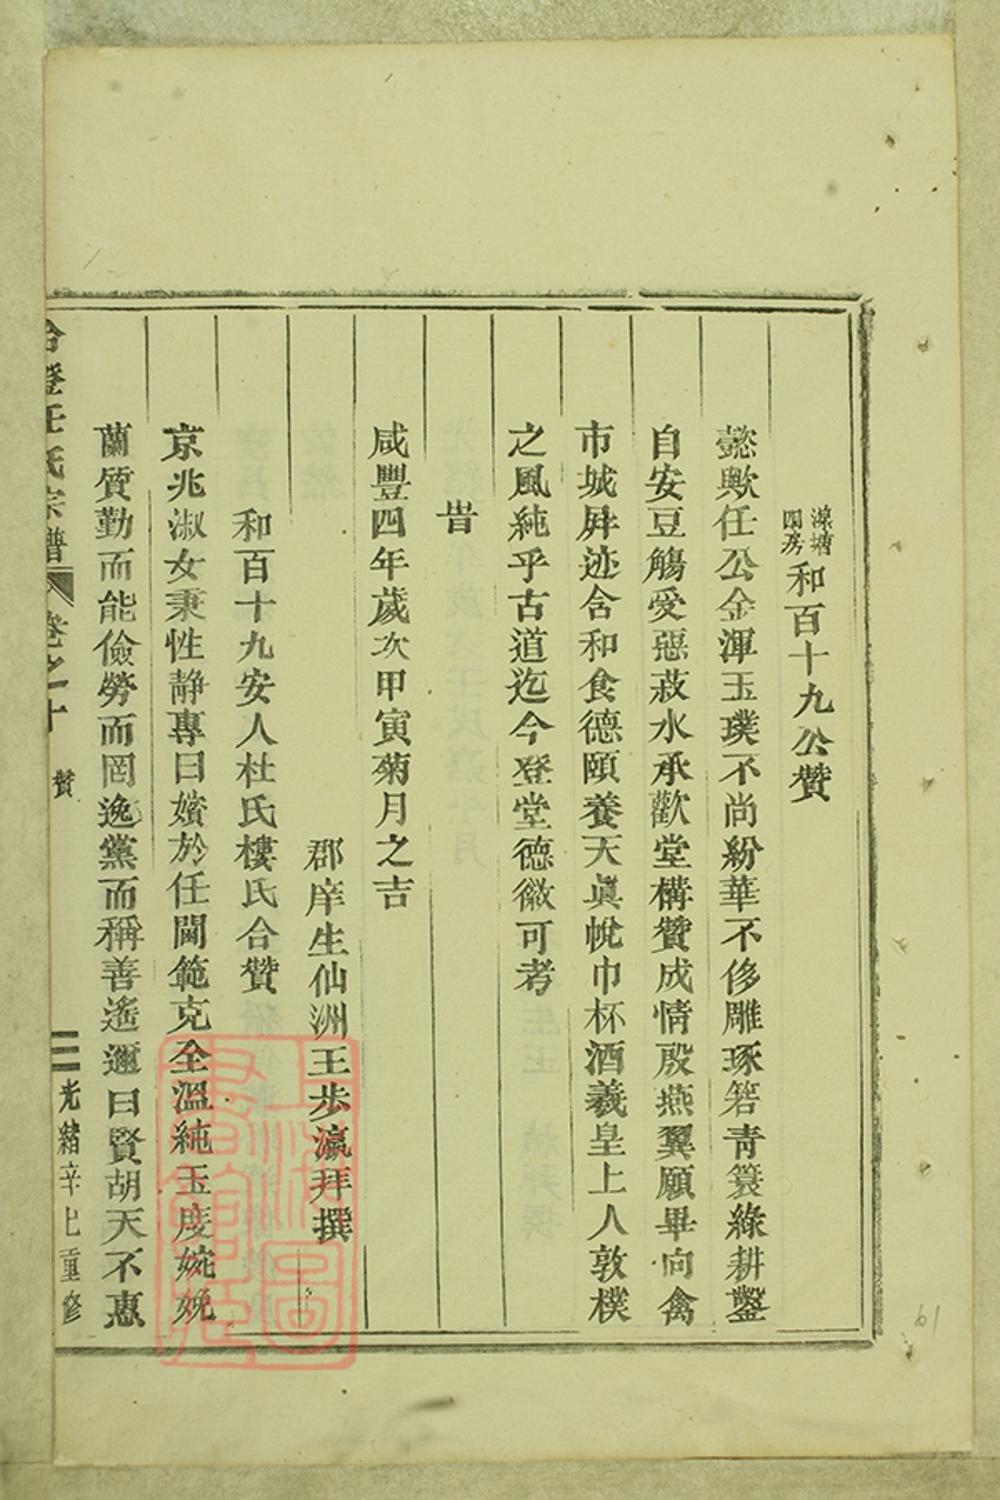 濠塘
四房
和百十九公贊
懿歟任公金渾玉璞不尚紛華不侈雕琢箬青蓑綠耕鑿
自安豆觴受惡菽水承歡堂構贊成情殷燕翼願畢向禽
市城屏迹含和食德頤養天眞帨巾杯酒羲皇上人敦樸
之風純乎古道迄今登堂德徽可考
旹
咸豐四年歲次甲寅菊月之吉
郡庠生仙洲王步瀛拜撰
和百十九安人杜氏樓氏合贊
京兆淑女秉性静專曰嬪於任閫範克全溫純玉度婉娩
蘭質勤而能儉勞而罔逸黨而稱善遙邇曰賢胡天不惠
任氏宗譜 卷之十 贊 三 光緒辛丑重修
上海圖書館藏
61